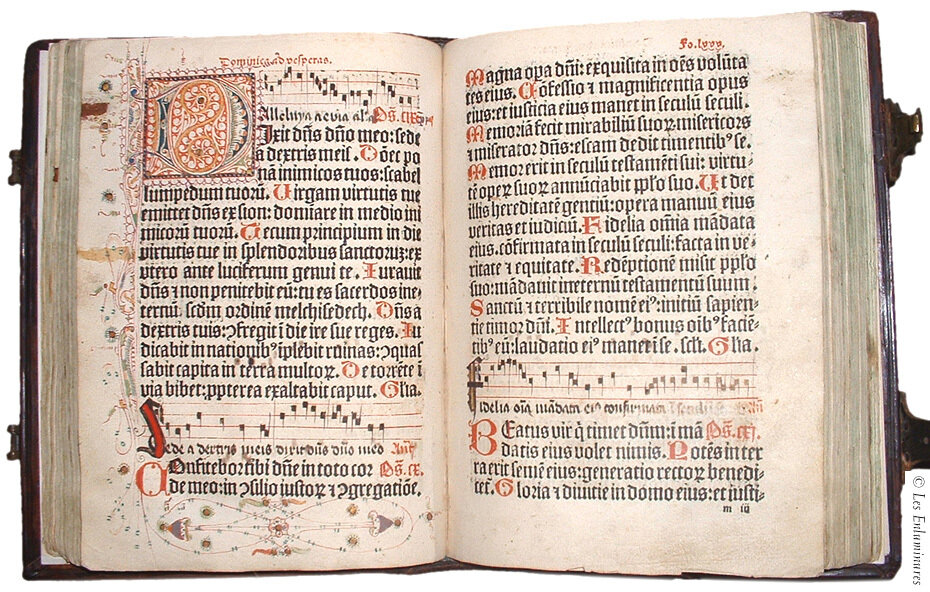 Dominica ad vesperas.
Alleluya a evia al'a Ps. cix
Dixit dn̄s dn̄o meo: sede
a dextris meis. Donec po
nā inimicos tuos: scabel
lum pedum tuorū. Uirgam virtutis tue
emittet dn̄s ex sion: domīare in medio ini
micorū tuorū. Tecum principium in die
virtutis tue in splendoribus sanctoruz: ex
vtero ante luciferum genui te. Iurauit
dn̄s ⁊ non penitebit eū: tu es sacerdos ine-
ternū scdm ordinē melchisedech. Dn̄s a
dextris tuis: ꝯfregit ī die ire sue reges. Iu
dicabit in nationibꝰ īplebit ruinas: ꝯquas
sabit capita in terra multoꝝ. De torrēte ī
via bibet: ꝓpterea exaltabit caput. Glīa.
Sede a dextris meis dixit dn̄s dn̄o meo
Confitebor tibi dn̄e in toto cor Ps. cx.
de meo: in ꝯsilio iustoꝝ ⁊ ꝯgregatiōe.
Fo. lxxx.
Magna opa dn̄i: exquisita in oēs volūta
tes eius. Cōfessio ⁊ magnificentia opus
eius: et iusticia eius manet in seculū seculi.
Memoriā fecit mirabiliū suoꝝ: misericors
⁊ miserator dn̄s: escam dedit timentibꝰ se.
Memor erit in seculū testamēti sui: virtu-
tē opeꝝ suoꝝ annūciabit pplo suo. Ut det
illis hereditatē gentiū: opera manuū eius
veritas et iudiciū. Fidelia omīa mādata
eius. cōfirmata in seculū seculi: facta in ve-
ritate ⁊ equitate. Redēptionē misit pplo
suo: mādauit in eternū testamentū suum.
Sanctū ⁊ terribile nomē eiꝰ: initiū sapien-
tie timor dn̄i. Intellectꝰ bonus oībꝰ faciē-
tibꝰ eū: laudatio eiꝰ manet ī se. sclī. Glīa.
Fidelia oīa mādata eiꝰ confirmata ī seculū
Beatus vir q̄ timet dn̄um: ī mā Ps. cxj.
datis eius volet nimis. Potēs in ter
ra erit semē eius: generatio rectoꝝ benedi
cet. Gloria ⁊ diuitie in domo eius: et iusti-
m iii
© Les Enluminures